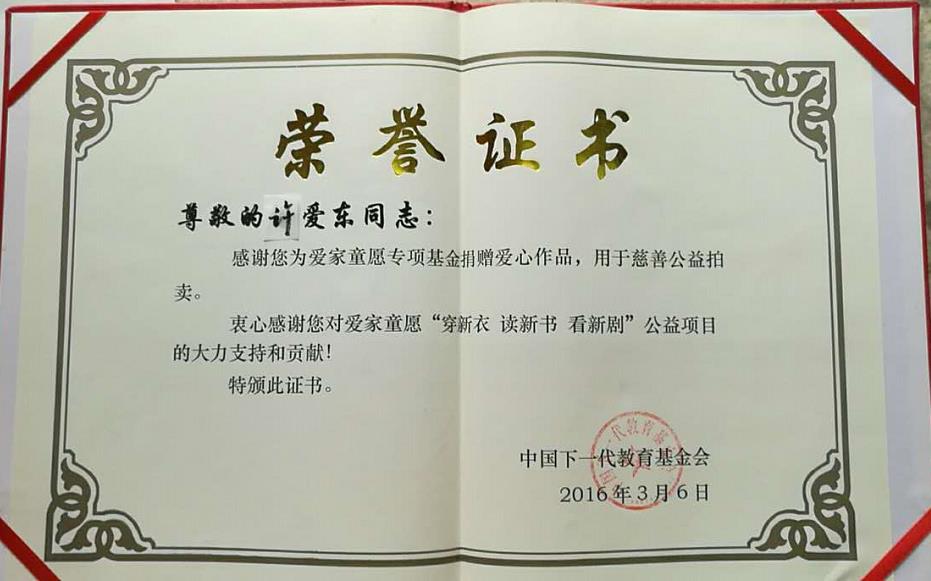 荣誉证书
尊敬的许爱东同志：
感谢您为爱家童愿专项基金捐赠爱心作品，用于慈善公益拍
卖。
衷心感谢您对爱家童愿“穿新衣 读新书 看新剧”公益项目
的大力支持和贡献！
特颁此证书。
中国下一代教育基金会
2016年3月6日